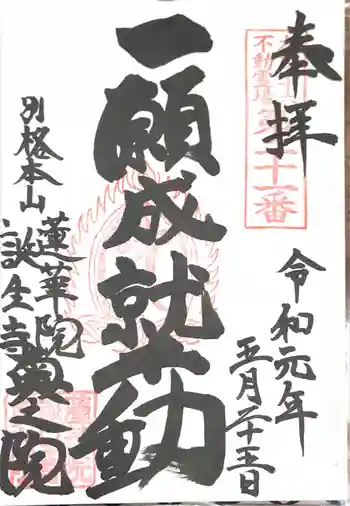 奉拝
不動霊場第二十一番
令和元年
五月二十五日
一願成就不動
別格本山
蓮華院
誕生寺奥之院